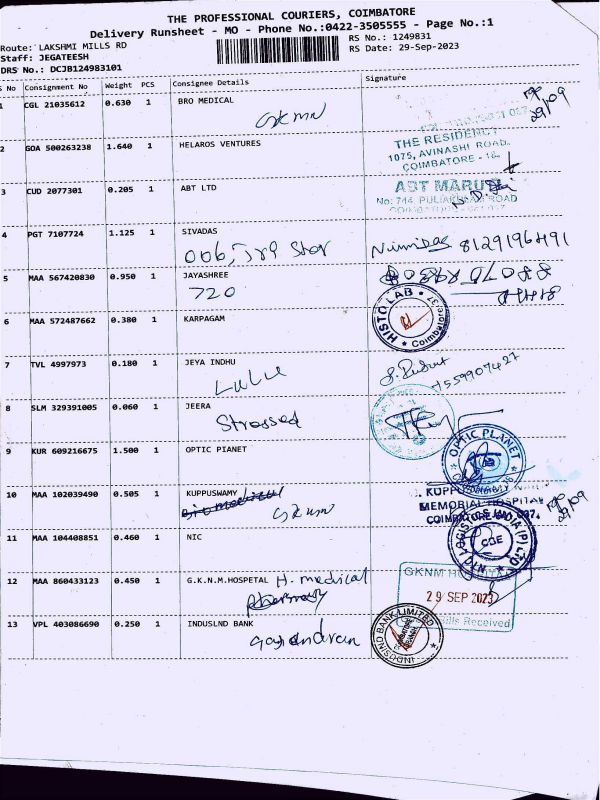 THE PROFESSIONAL COURIERS, COIMBATORE
Delivery Runsheet - MO - Phone No.:0422-3505555 - Page No.:1
Route: LAKSHMI MILLS RD RS No.: 1249831
Staff: JEGATEESH RS Date: 29-Sep-2023
DRS No.: DCJB124983101
S No Consignment No Weight PCS Consignee Details Signature
1 CGL 21035612 0.630 1 BRO MEDICAL
GKMN
29/09
2 GOA 500263238 1.640 1 HELAROS VENTURES
THE RESIDENCY
1075, AVINASHI ROAD.
COIMBATORE - 18.
3 CUD 2077301 0.205 1 ABT LTD
ABT MARUTI
No: 744, PULIAKULAM ROAD
4 PGT 7107724 1.125 1 SIVADAS
8129196491
5 MAA 567420830 0.950 1 JAYASHREE
720
6 MAA 572487662 0.380 1 KARPAGAM
HISTO LAB * Coimbatore-37. *
7 TVL 4997973 0.180 1 JEYA INDHU
LuLu
7559907427
8 SLM 329391005 0.060 1 JEERA
Stressed
9 KUR 609216675 1.500 1 OPTIC PIANET
OPTIC PLANET
10 MAA 102039490 0.505 1 KUPPUSWAMY
KUPPU
MEMORIAL HOSPITAL
29/09
11 MAA 104408851 0.460 1 NIC
12 MAA 860433123 0.450 1 G.K.N.M.HOSPETAL H. medical
pharmacy
GKNM HOSPITAL
29 SEP 2023
Bills Received
13 VPL 403086690 0.250 1 INDUSLND BANK
Gajendran
INDUSIND BANK LIMITED